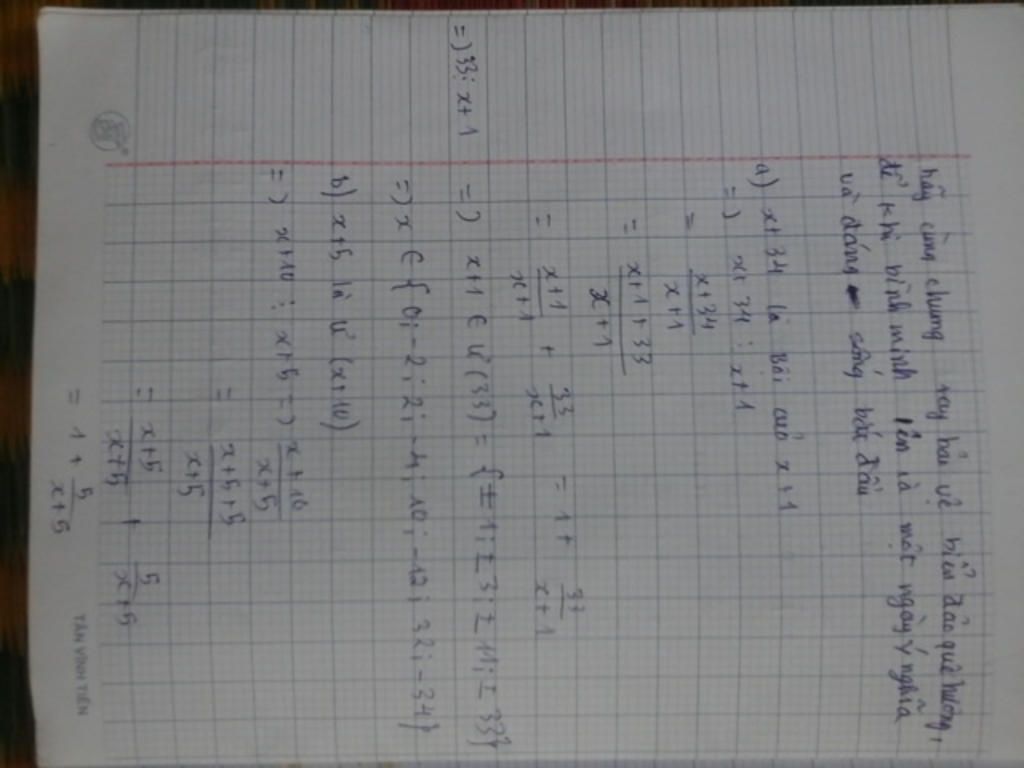 hãy cùng chung tay bảo vệ biển đảo quê hương,
để khi bình minh lên là một ngày ý nghĩa
và đáng sống bắt đầu
a) x+34 là Bội của x+1
=) x+34 ⋮ x+1
= \frac{x+34}{x+1}
= \frac{x+1+33}{x+1}
= \frac{x+1}{x+1} + \frac{33}{x+1} = 1 + \frac{33}{x+1}
=) 33 ⋮ x+1 =) x+1 ∈ Ư(33) = {±1; ±3; ±11; ±33}
=) x ∈ {0; -2; 2; -4; 10; -12; 32; -34}
b) x+5 là Ư (x+10)
=) x+10 ⋮ x+5 =) \frac{x+10}{x+5}
= \frac{x+5+5}{x+5}
= \frac{x+5}{x+5} + \frac{5}{x+5}
= 1 + \frac{5}{x+5}
TÂN VĨNH TIẾN